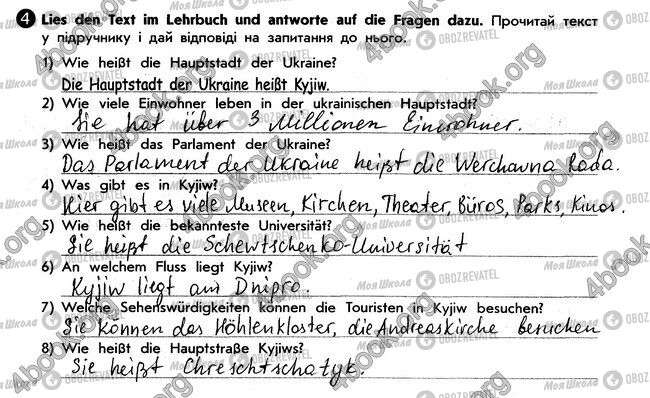 4 Lies den Text im Lehrbuch und antworte auf die Fragen dazu. Прочитай текст
у підручнику і дай відповіді на запитання до нього.
1) Wie heißt die Hauptstadt der Ukraine?
Die Hauptstadt der Ukraine heißt Kyjiw.
2) Wie viele Einwohner leben in der ukrainischen Hauptstadt?
Sie hat über 3 Millionen Einwohner.
3) Wie heißt das Parlament der Ukraine?
Das Parlament der Ukraine heißt die Werchowna Rada.
4) Was gibt es in Kyjiw?
Hier gibt es viele Museen, Kirchen, Theater, Büros, Parks, Kinos.
5) Wie heißt die bekannteste Universität?
Sie heißt die Schewtschenko-Universität
6) An welchem Fluss liegt Kyjiw?
Kyjiw liegt am Dnipro.
7) Welche Sehenswürdigkeiten können die Touristen in Kyjiw besuchen?
Sie können das Höhlenkloster, die Andreaskirche besuchen
8) Wie heißt die Hauptstraße Kyjiws?
Sie heißt Chreschtschatyk.